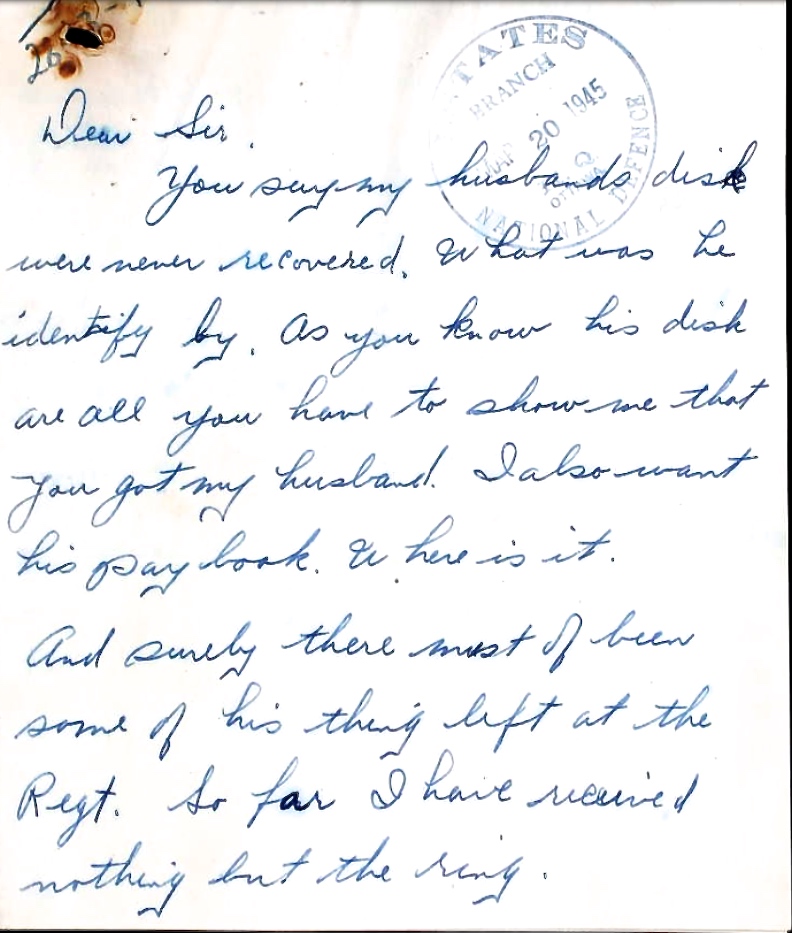 26
ESTATES
BRANCH
MAR 20 1945
NATIONAL DEFENCE
Dear Sir.
You say my husbands disk
were never recovered. What was he
identify by. As you know his disk
are all you have to show me that
you got my husband. I also want
his pay book. Where is it.
And surely there must of been
some of his thing left at the
Regt. So far I have received
nothing but the ring.